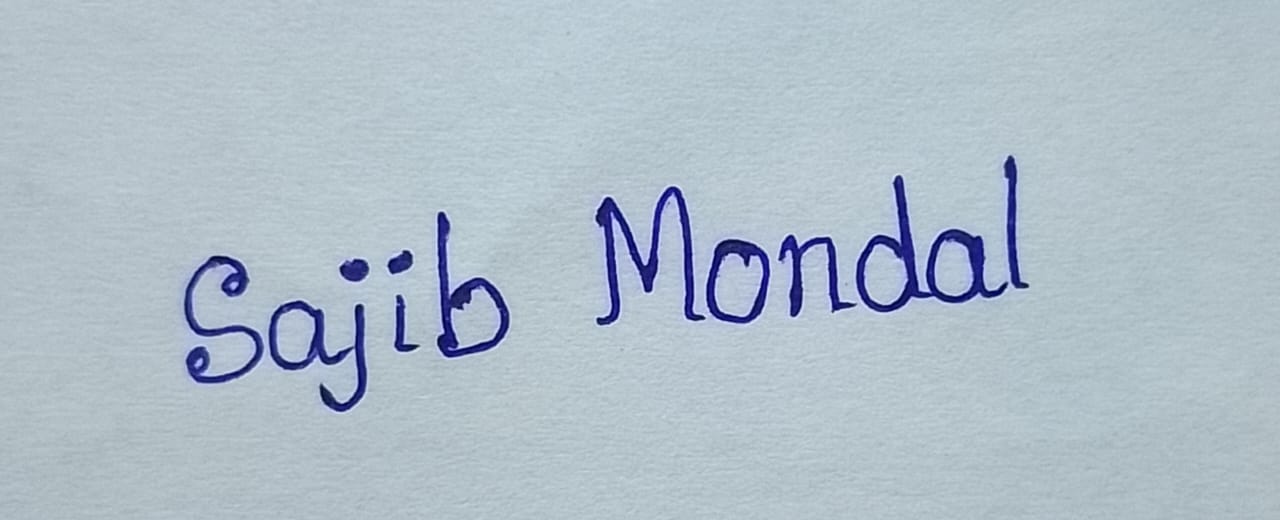 Sajib Mondal